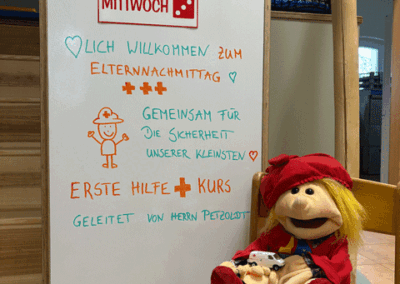 MITTWOCH
LICH WILLKOMMEN ZUM
ELTERNNACHMITTAG
GEMEINSAM FÜR
DIE SICHERHEIT
UNSERER KLEINSTEN
ERSTE HILFE + KURS
GELEITET VON HERRN PETZOLDT